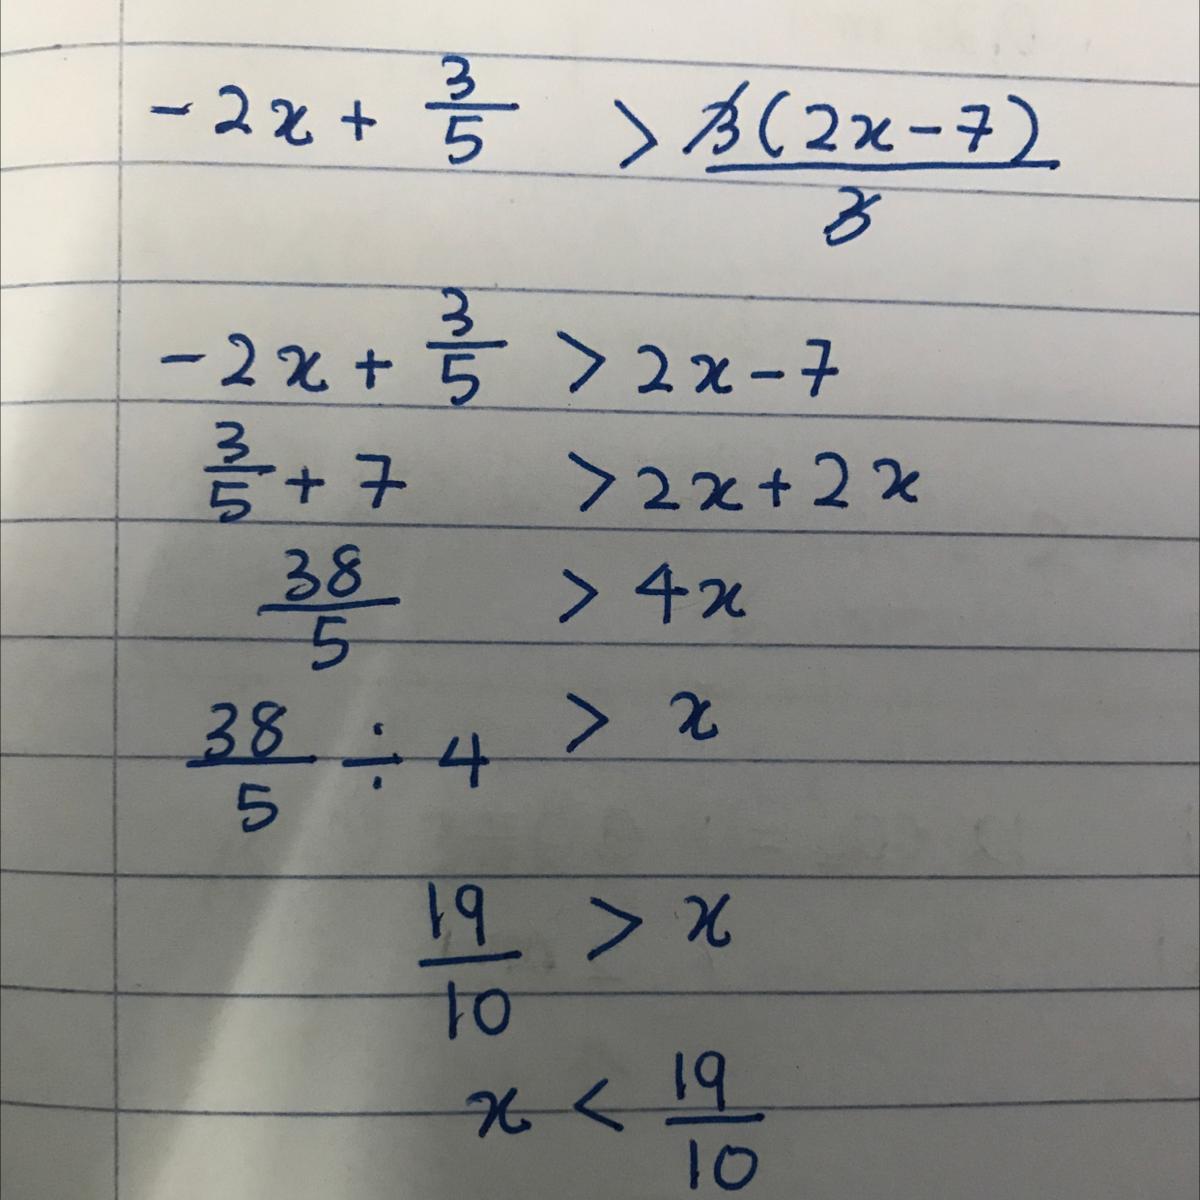 -2x + 3/5 > 3(2x-7)/3
-2x + 3/5 > 2x-7
3/5 + 7 > 2x+2x
38/5 > 4x
38/5 ÷ 4 > x
19/10 > x
x < 19/10